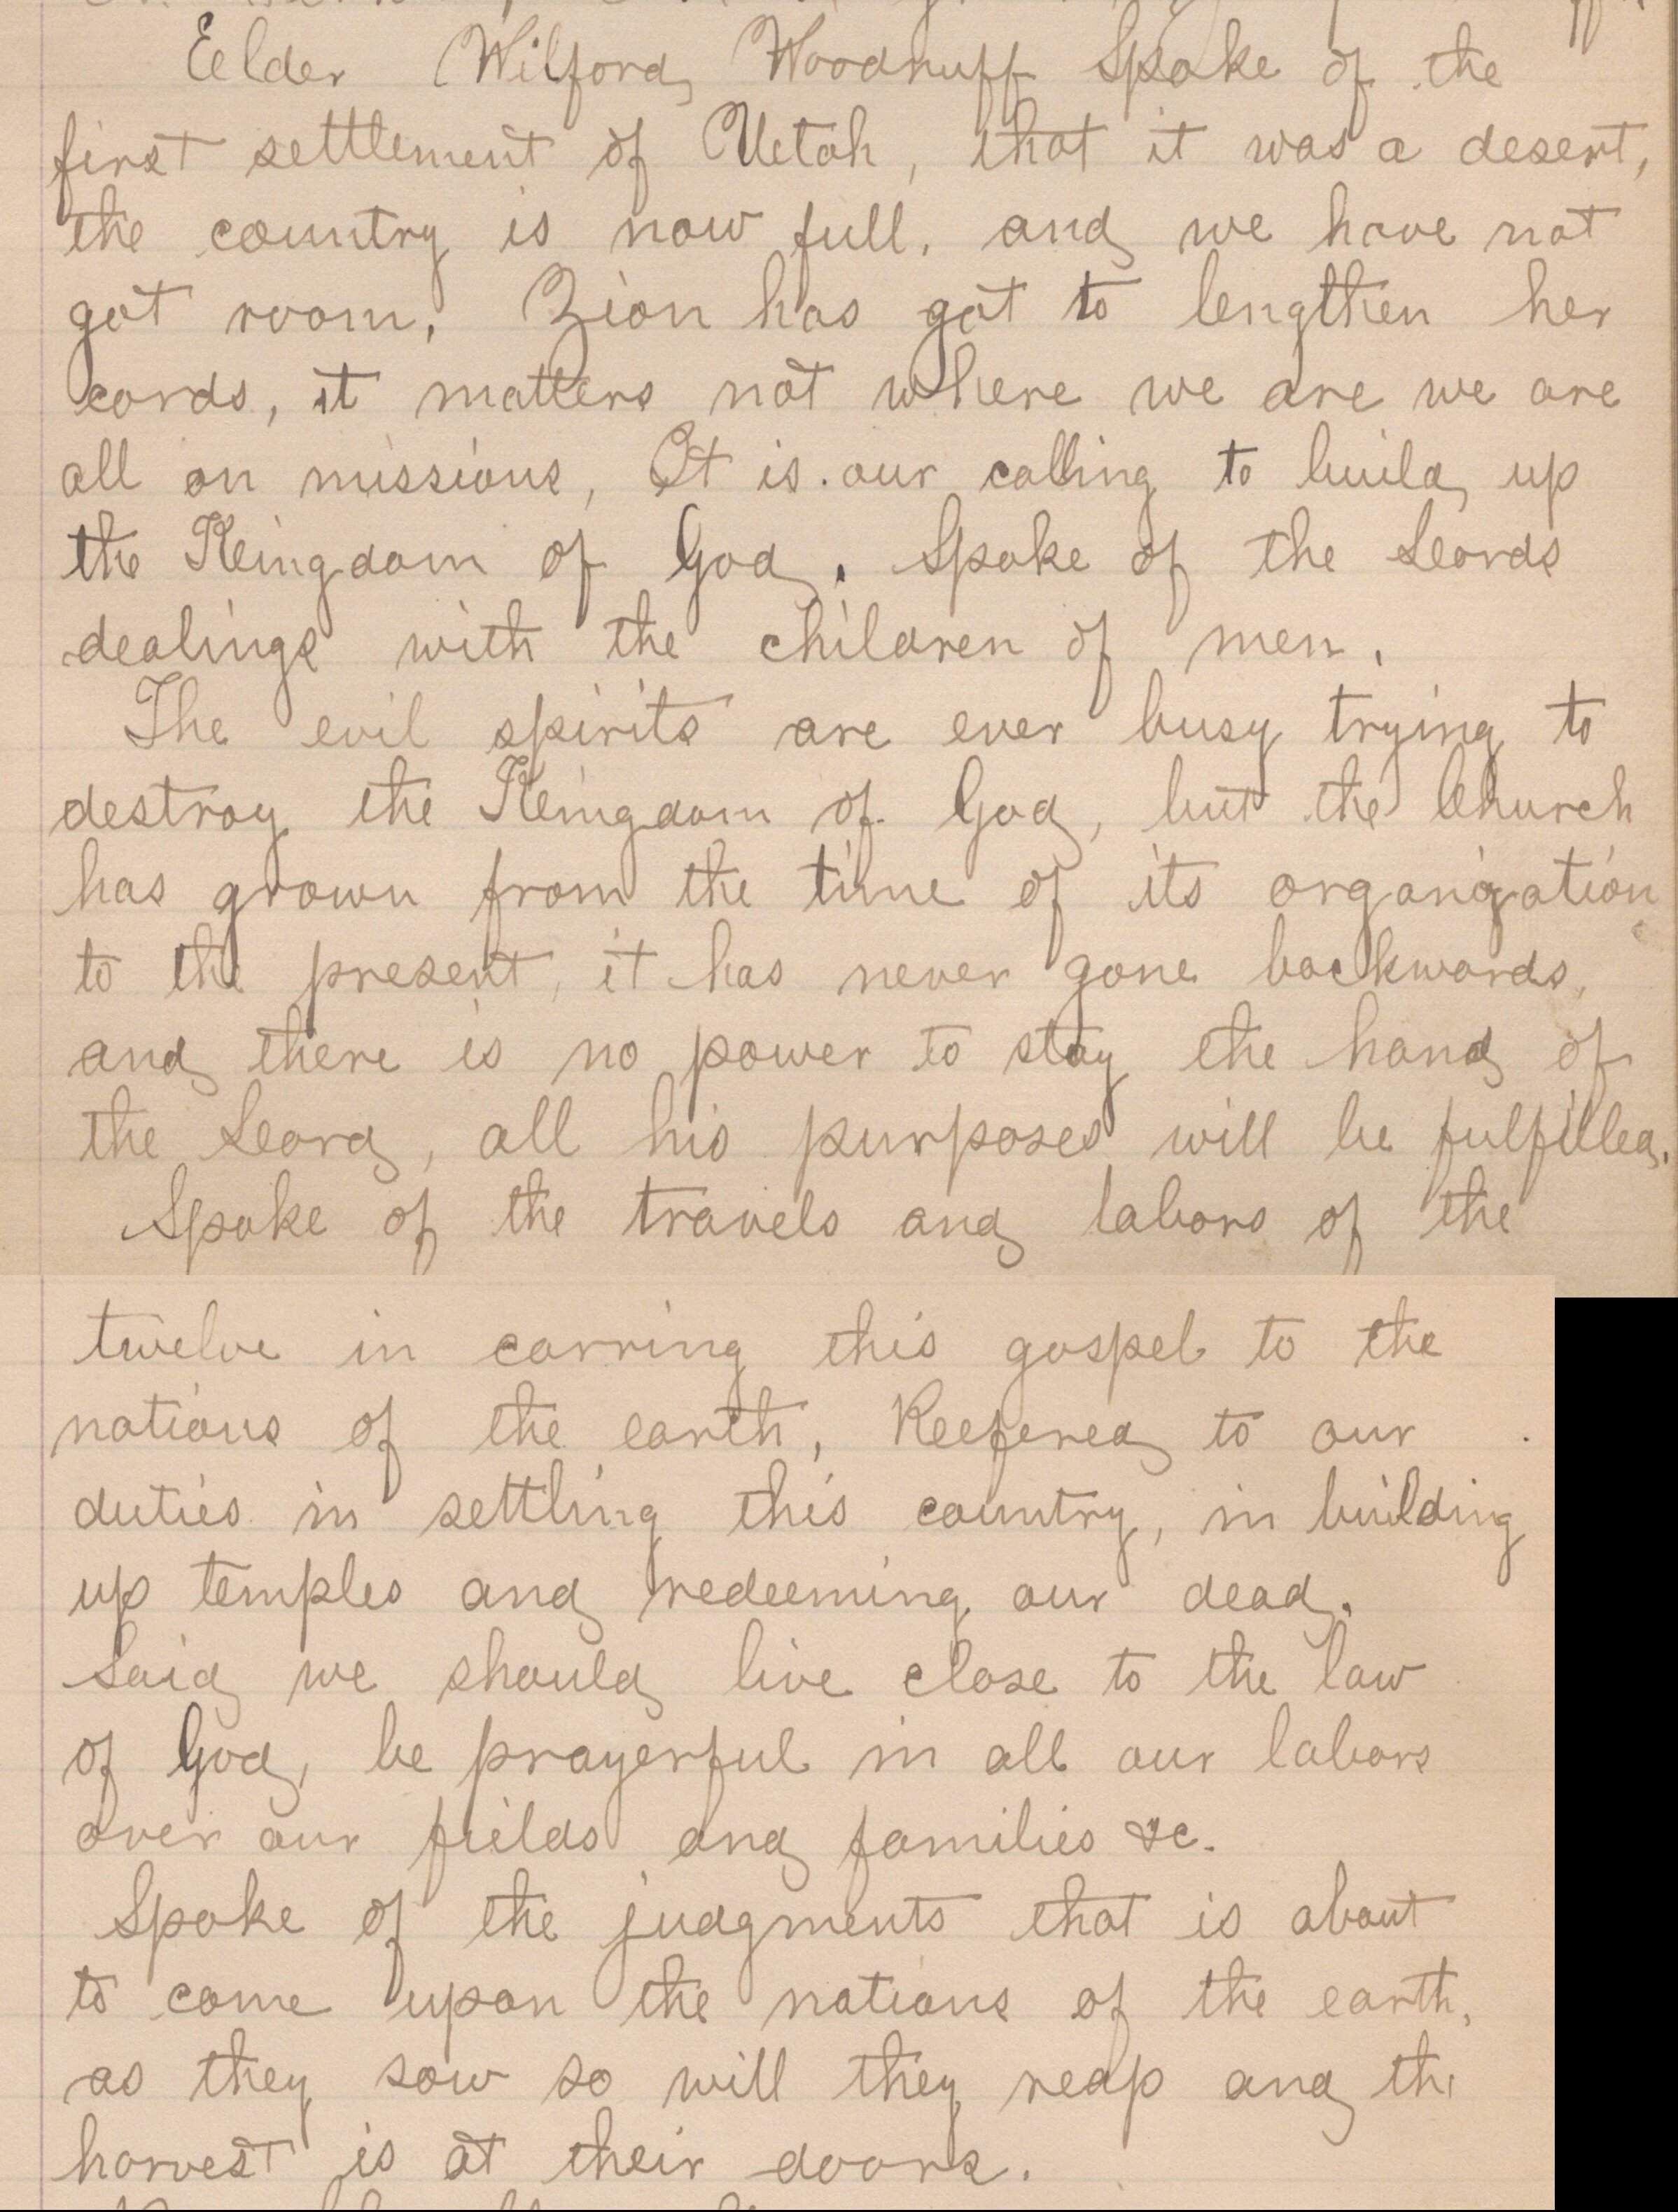 Eelder Wilford Woodruff Spoke of the
first settlement of Uetah, that it was a desert,
the country is now full, and we have not
got room, Zion has got to lengthen her
cords, it matters not where we are we are
all on missions, It is our calling to build up
the Keingdom of God. Spoke of the Leords
dealings with the children of men.
The evil spirits are ever busy trying to
destroy the Keingdom of God, but the Church
has grown from the time of its organization
to the present, it has never gone backwards,
and there is no power to stay the hand of
the Leord, all his purposes will be fulfilled.
Spoke of the travels and labors of the
twelve in carring this gospel to the
nations of the earth, Reefered to our
duties in settling this country, in building
up temples and redeeming our dead.
Said we should live close to the law
of God, be prayerful in all our labors
over our fields and families &c.
Spoke of the judgments that is about
to come upon the nations of the earth,
as they sow so will they reap and the
harvest is at their doors.